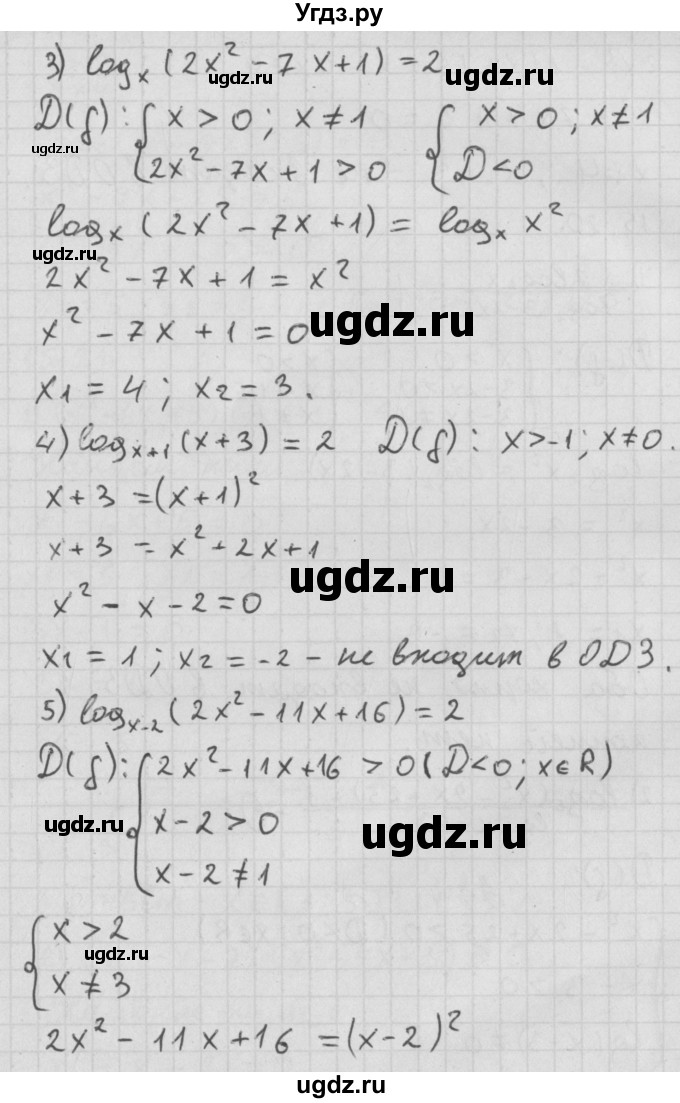 Угдз.ру
3) log_x (2x² - 7x + 1) = 2
ugdz.ru
D(f): { x > 0; x ≠ 1 { x > 0; x ≠ 1
ugdz.ru
2x² - 7x + 1 > 0 D < 0
log_x (2x² - 7x + 1) = log_x x²
ugdz.ru
2x² - 7x + 1 = x²
x² - 7x + 1 = 0
ugdz.ru
x1 = 4; x2 = 3.
4) log_{x+1} (x+3) = 2 D(f): x > -1; x ≠ 0.
x + 3 = (x+1)²
x + 3 = x² + 2x + 1
ugdz.ru
x² - x - 2 = 0
x1 = 1; x2 = -2 - не входит в ОДЗ.
5) log_{x-2} (2x² - 11x + 16) = 2
D(f): { 2x² - 11x + 16 > 0 (D < 0; x ∈ R)
ugdz.ru x - 2 > 0 ugdz.ru
x - 2 ≠ 1
{ x > 2
ugdz.ru
x ≠ 3
2x² - 11x + 16 = (x-2)²
ugdz.ru